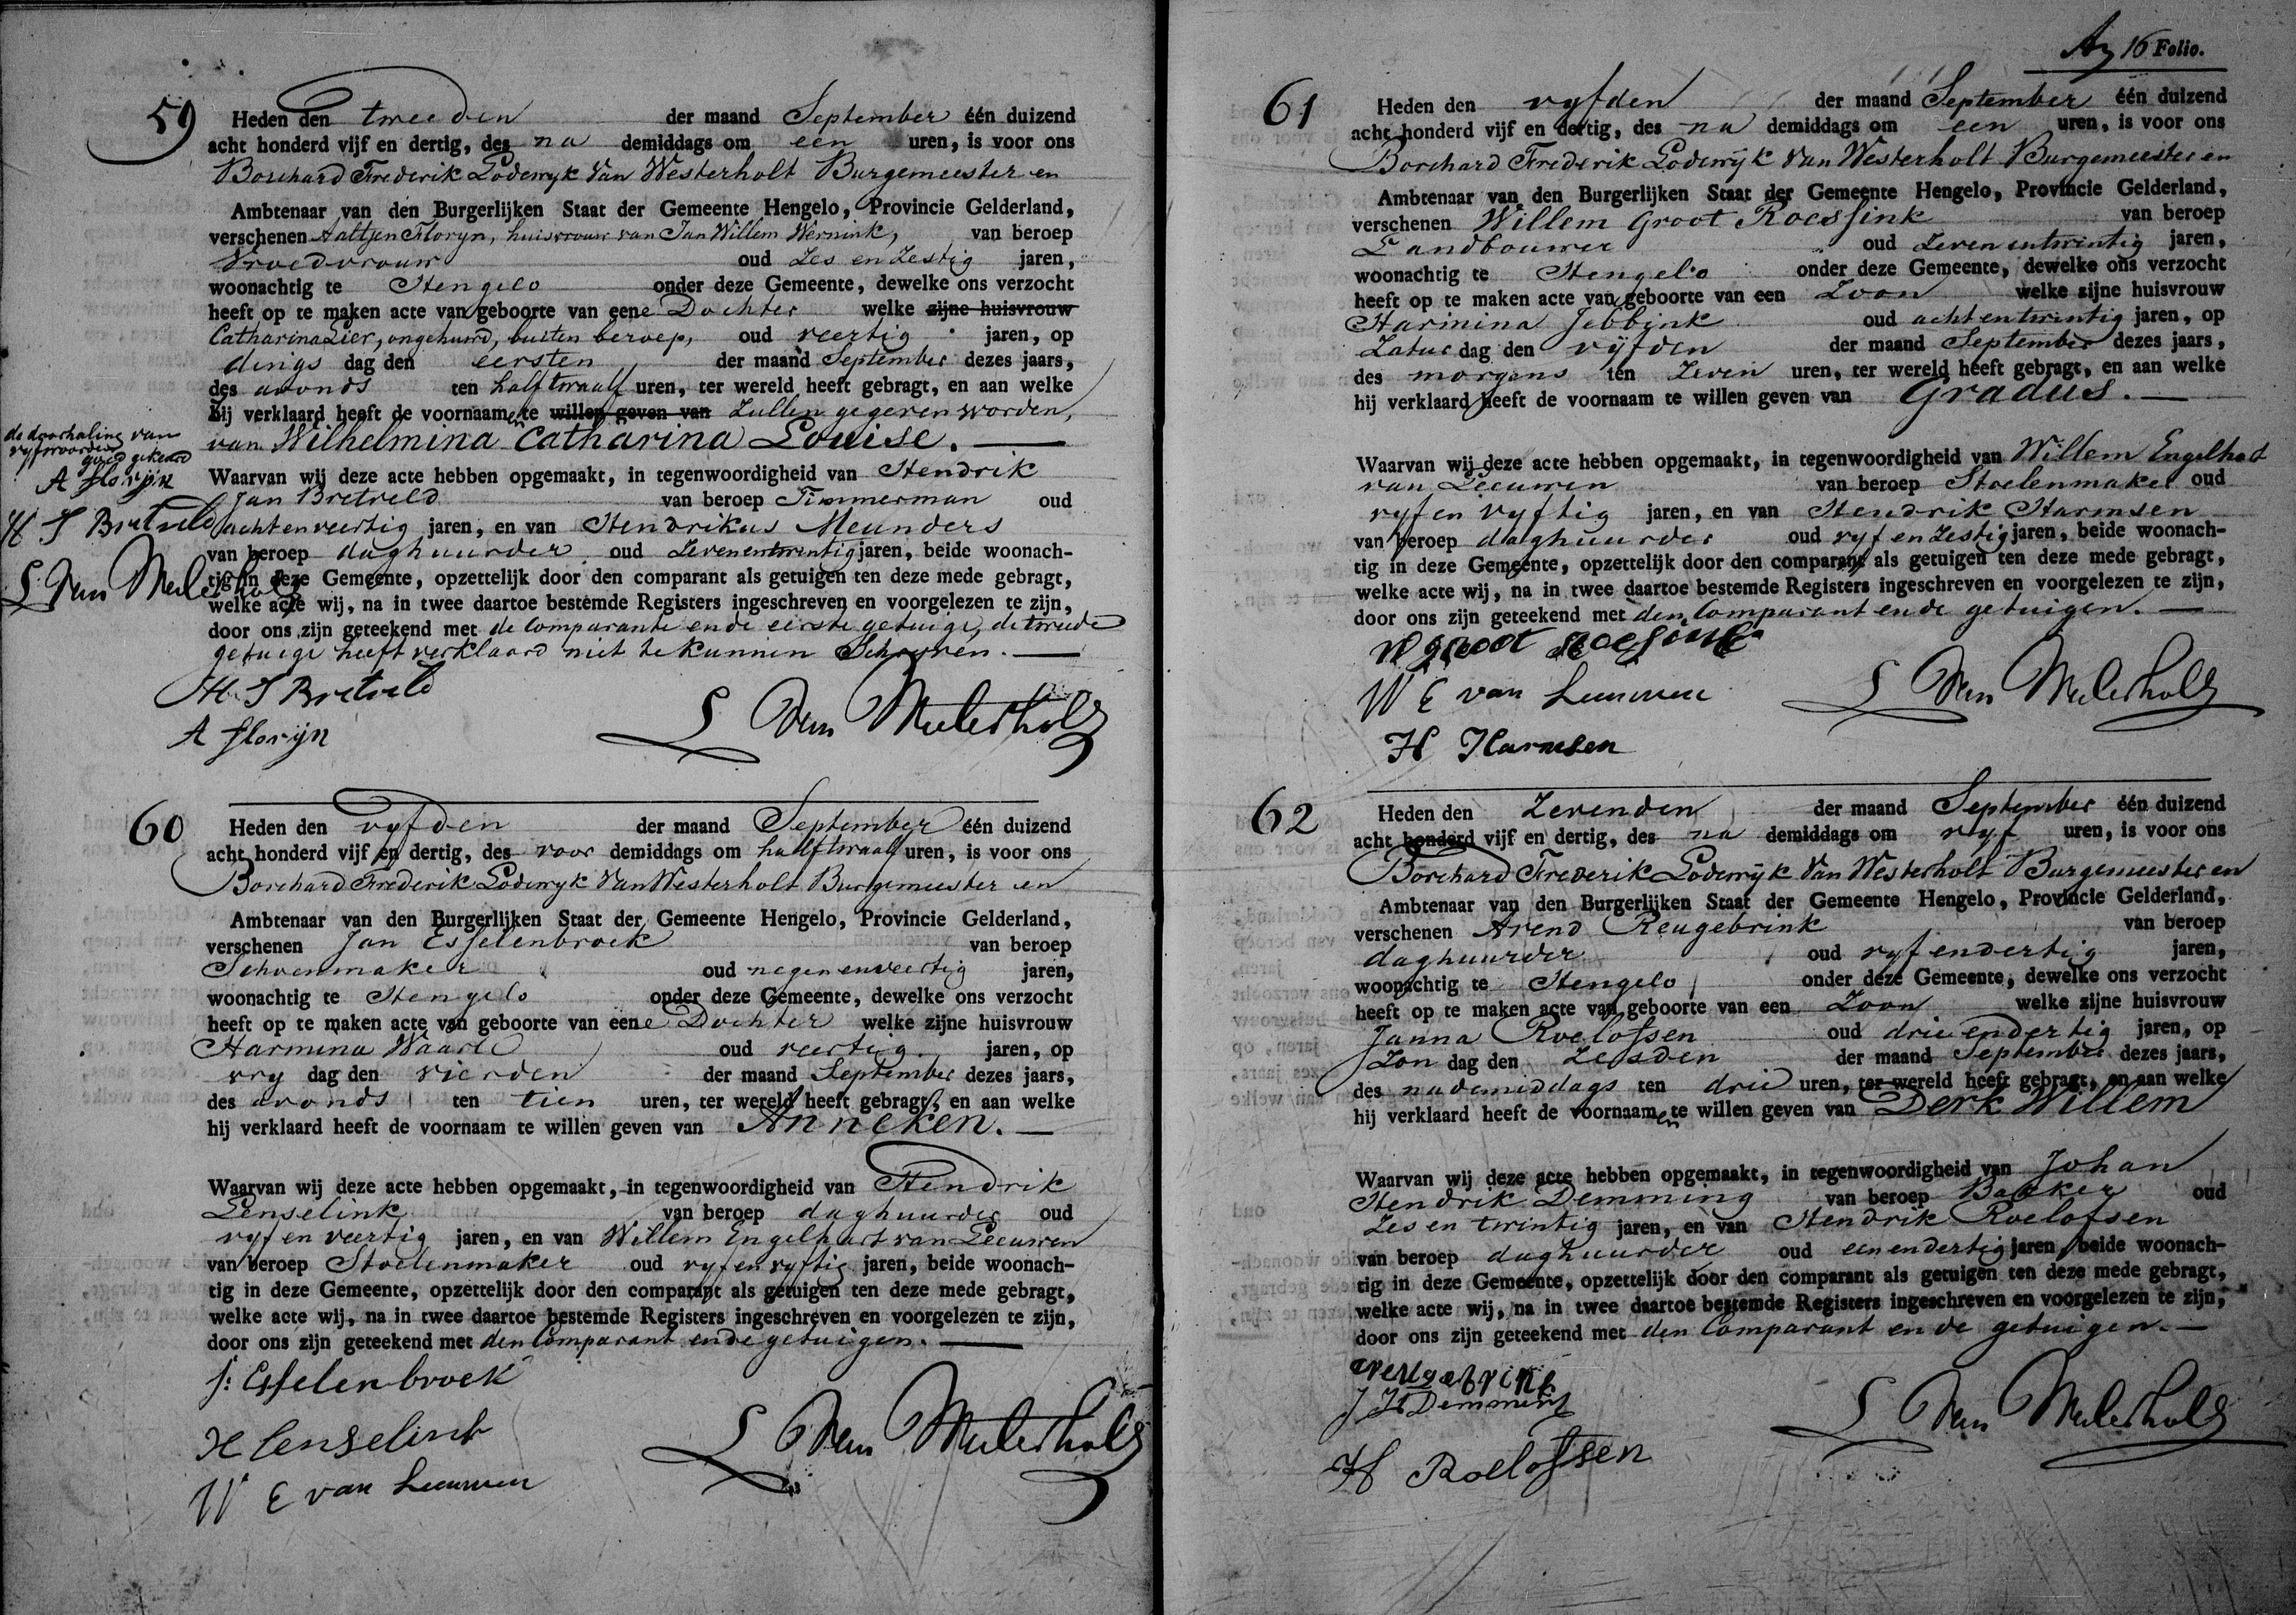 59
Heden den tweeden der maand September één duizend
acht honderd vijf en dertig, des na demiddags om een uren, is voor ons
Borchard Frederik Lodewyk Van Westerholt Burgemeester en
Ambtenaar van den Burgerlijken Staat der Gemeente Hengelo, Provincie Gelderland,
verschenen Aaltjen Floryn, huisvrouw van Jan Willem Wernink, van beroep
Vroedvrouw oud Zes en Zestig jaren,
woonachtig te Hengelo onder deze Gemeente, dewelke ons verzocht
heeft op te maken acte van geboorte van eene Dochter welke zijne huisvrouw
Catharina Lier, ongehuwd, buiten beroep, oud veertig jaren, op
dings dag den eersten der maand September dezes jaars,
des avonds ten half twaalf uren, ter wereld heeft gebragt, en aan welke
Zij verklaard heeft de voornaamen te willen geven van Zullen gegeven worden,
van Wilhelmina Catharina Louise.
de doorhaling van
vyf woorden
goed gekeurd
A Florijn
H J Bretveld
L Van Westerholt
Waarvan wij deze acte hebben opgemaakt, in tegenwoordigheid van Hendrik
Jan Bretveld van beroep Timmerman oud
acht en veertig jaren, en van Hendrikus Meunders
van beroep daghuurder oud Zeven en twintig jaren, beide woonach-
tig in deze Gemeente, opzettelijk door den comparant als getuigen ten deze mede gebragt,
welke acte wij, na in twee daartoe bestemde Registers ingeschreven en voorgelezen te zijn,
door ons zijn geteekend met de Comparante en de eerste getuige, de tweede
getuige heeft verklaard niet te kunnen Schryven.
H. J Bretveld
A Florijn
L Van Westerholt
60
Heden den vyfden der maand September één duizend
acht honderd vijf en dertig, des voor demiddags om half twaalf uren, is voor ons
Borchard Frederik Lodewyk Van Westerholt Burgemeester en
Ambtenaar van den Burgerlijken Staat der Gemeente Hengelo, Provincie Gelderland,
verschenen Jan Esselenbroek van beroep
Schoenmaker oud negen en veertig jaren,
woonachtig te Hengelo onder deze Gemeente, dewelke ons verzocht
heeft op te maken acte van geboorte van eene Dochter welke zijne huisvrouw
Harmina Waarle oud veertig jaren, op
vry dag den vierden der maand September dezes jaars,
des avonds ten tien uren, ter wereld heeft gebragt, en aan welke
hij verklaard heeft de voornaam te willen geven van Anneken.
Waarvan wij deze acte hebben opgemaakt, in tegenwoordigheid van Hendrik
Lenselink van beroep daghuurder oud
vyf en veertig jaren, en van Willem Engelhart van Leeuwen
van beroep Stoelenmaker oud vyf en vyftig jaren, beide woonach-
tig in deze Gemeente, opzettelijk door den comparant als getuigen ten deze mede gebragt,
welke acte wij, na in twee daartoe bestemde Registers ingeschreven en voorgelezen te zijn,
door ons zijn geteekend met den Comparant en de getuigen.
J: Esselenbroek
H Lenselink
W E van Leeuwen
L Van Westerholt
16 Folio.
61
Heden den vyfden der maand September één duizend
acht honderd vijf en dertig, des na demiddags om een uren, is voor ons
Borchard Frederik Lodewyk Van Westerholt Burgemeester en
Ambtenaar van den Burgerlijken Staat der Gemeente Hengelo, Provincie Gelderland,
verschenen Willem Groot Roessink van beroep
Landbouwer oud Zeven en twintig jaren,
woonachtig te Hengelo onder deze Gemeente, dewelke ons verzocht
heeft op te maken acte van geboorte van een Zoon welke zijne huisvrouw
Harmina Jebbink oud acht en twintig jaren, op
Zatur dag den vyfden der maand September dezes jaars,
des morgens ten Zeven uren, ter wereld heeft gebragt, en aan welke
hij verklaard heeft de voornaam te willen geven van Gradus.
Waarvan wij deze acte hebben opgemaakt, in tegenwoordigheid van Willem Engelhart
van Leeuwen van beroep Stoelenmaker oud
vyf en vyftig jaren, en van Hendrik Harmsen
van beroep daghuurder oud vyf en Zestig jaren, beide woonach-
tig in deze Gemeente, opzettelijk door den comparant als getuigen ten deze mede gebragt,
welke acte wij, na in twee daartoe bestemde Registers ingeschreven en voorgelezen te zijn,
door ons zijn geteekend met den Comparant en de getuigen.
W groot Roessink
W E van Leeuwen
L Van Westerholt
H Harmsen
62
Heden den Zevenden der maand September één duizend
acht honderd vijf en dertig, des na demiddags om vyf uren, is voor ons
Borchard Frederik Lodewyk Van Westerholt Burgemeester en
Ambtenaar van den Burgerlijken Staat der Gemeente Hengelo, Provincie Gelderland,
verschenen Arend Reugebrink van beroep
daghuurder oud vyf en dertig jaren,
woonachtig te Hengelo onder deze Gemeente, dewelke ons verzocht
heeft op te maken acte van geboorte van een Zoon welke zijne huisvrouw
Janna Roelofsen oud drie en dertig jaren, op
Zon dag den Zesden der maand September dezes jaars,
des nademiddags ten drie uren, ter wereld heeft gebragt, en aan welke
hij verklaard heeft de voornaamen te willen geven van Derk Willem
Waarvan wij deze acte hebben opgemaakt, in tegenwoordigheid van Johan
Hendrik Demming van beroep Bakker oud
Zes en twintig jaren, en van Hendrik Roelofsen
van beroep daghuurder oud een en dertig jaren, beide woonach-
tig in deze Gemeente, opzettelijk door den comparant als getuigen ten deze mede gebragt,
welke acte wij, na in twee daartoe bestemde Registers ingeschreven en voorgelezen te zijn,
door ons zijn geteekend met den Comparant en de getuigen.
A reugebrink
J H Demming
L Van Westerholt
H Roelofsen